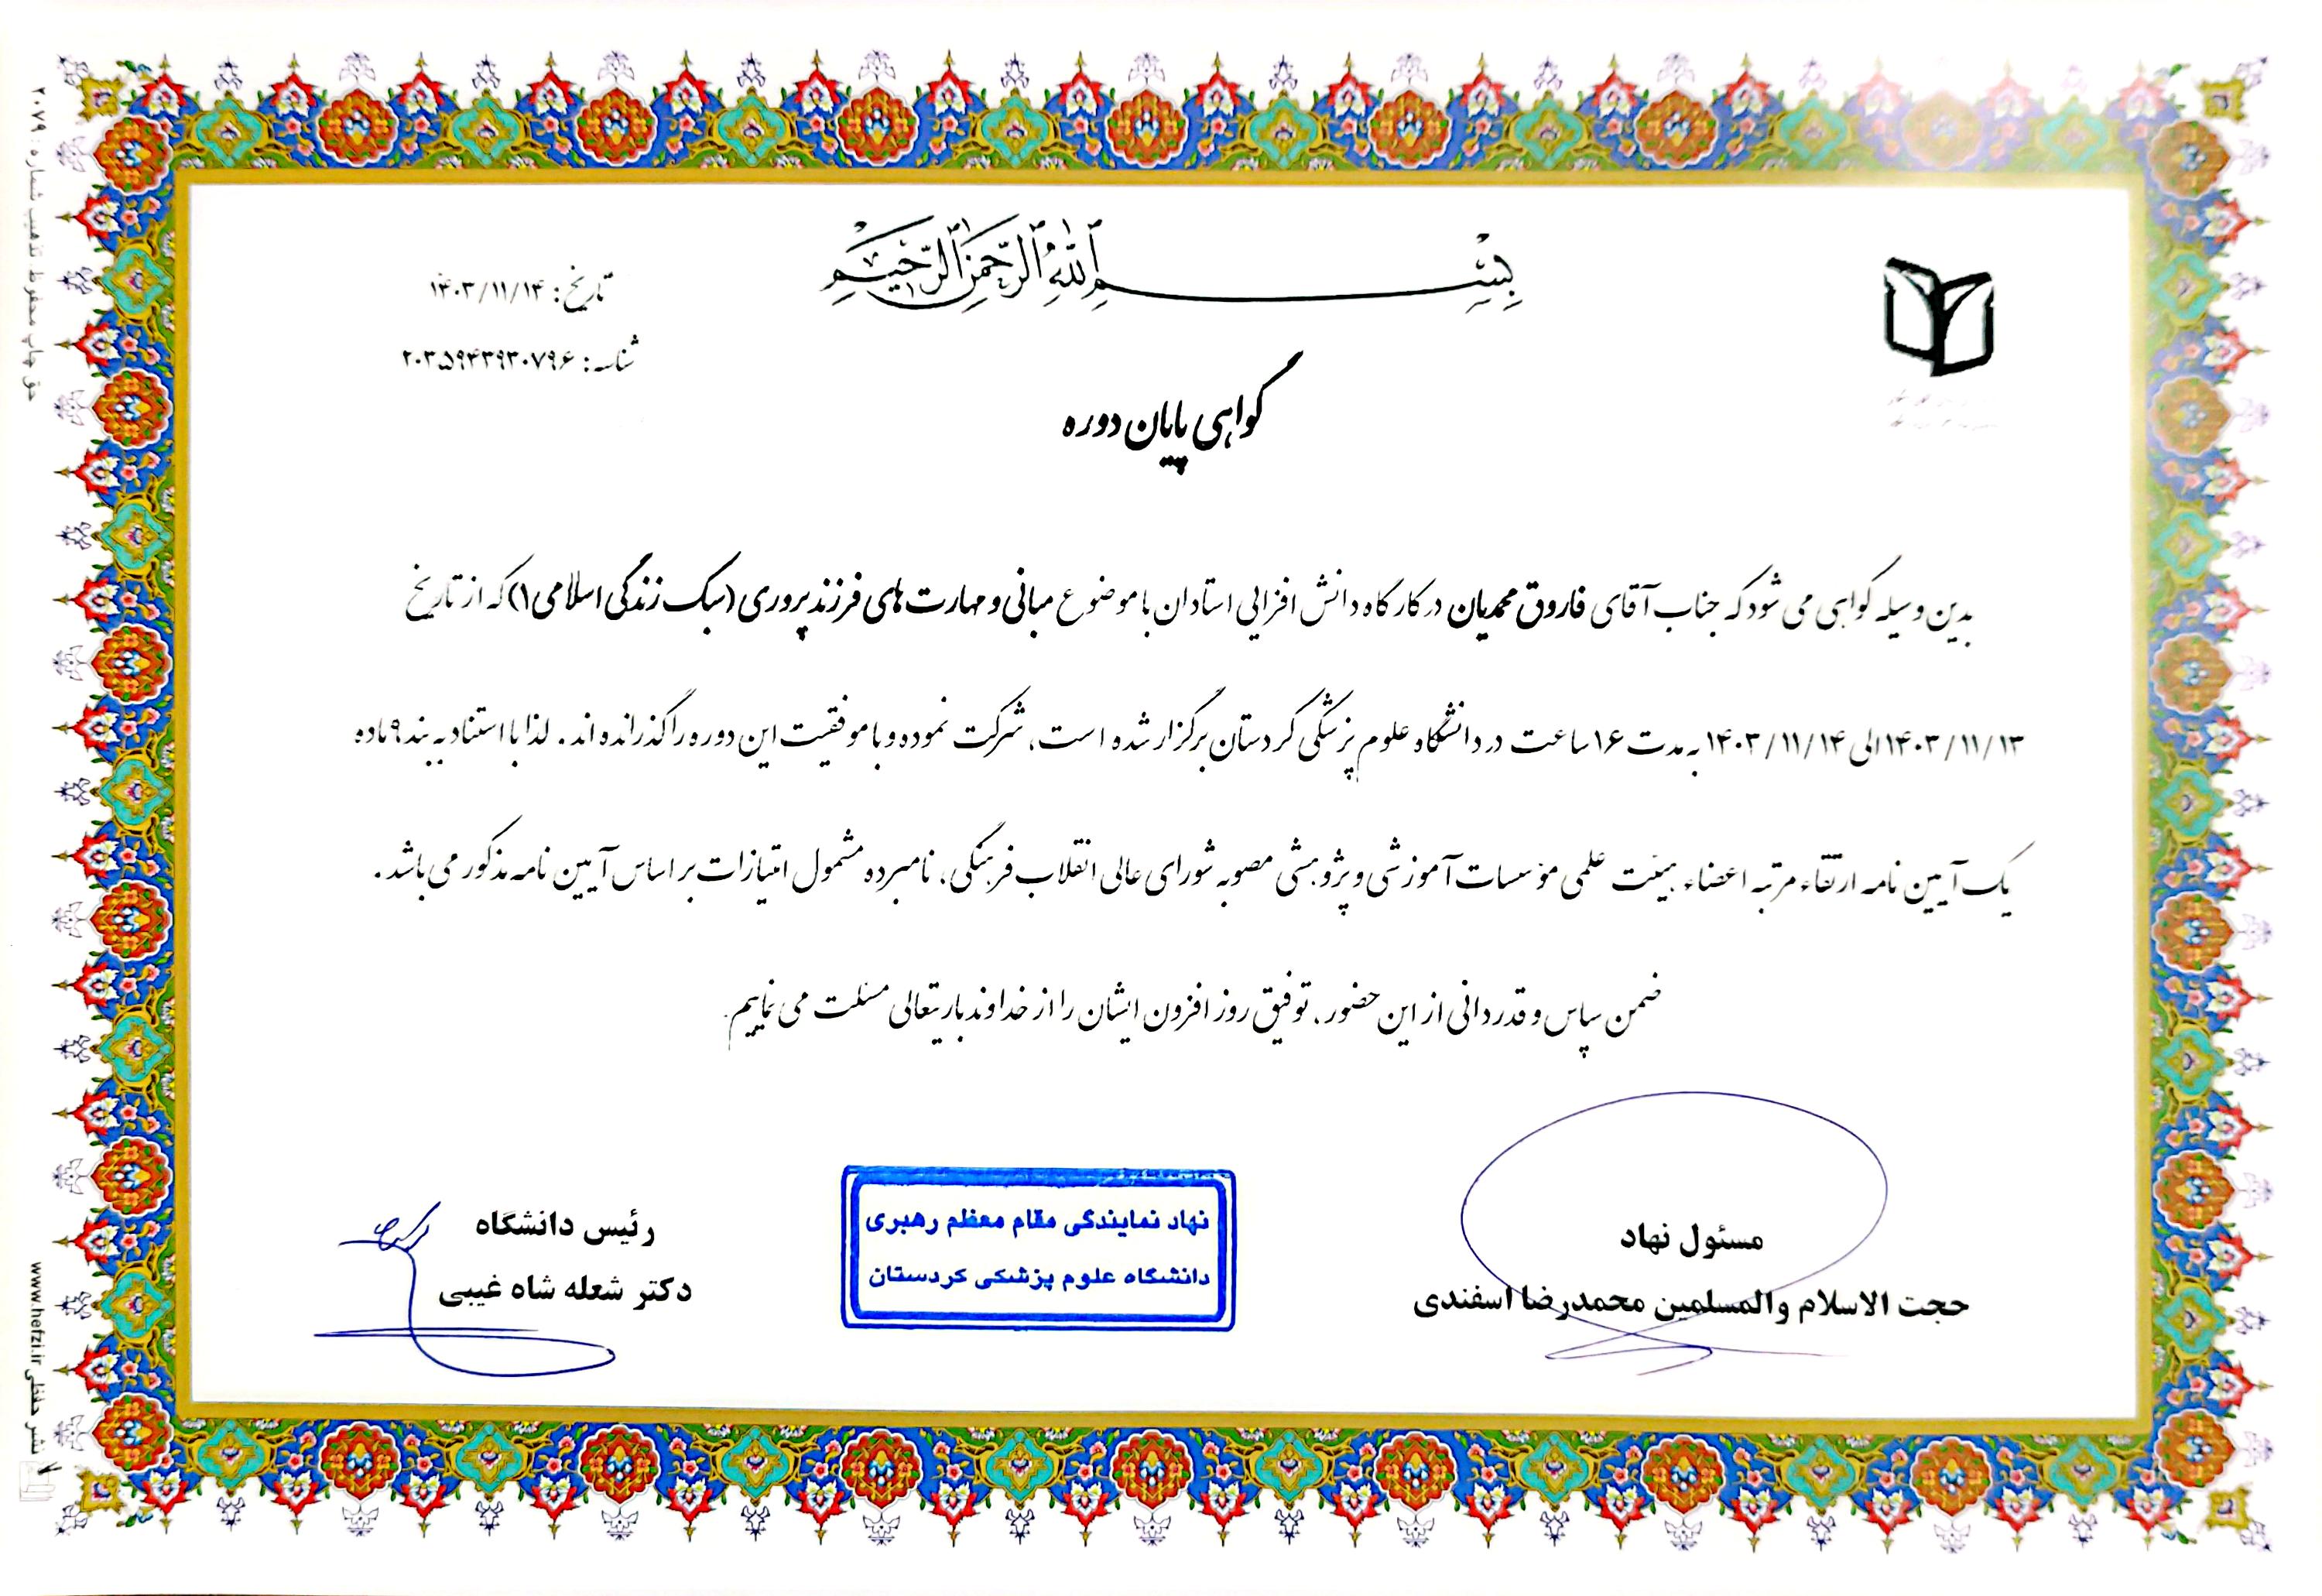 بسم الله الرحمن الرحیم
تاریخ: ۱۴۰۳/۱۱/۱۴
شناسه: ۲۰۳۵۹۴۳۹۳۰۷۹۶
گواهی پایان دوره
بدین وسیله گواهی می شود که جناب آقای فاروق محمدیان در کارگاه دانش افزایی استادان با موضوع مبانی و مهارت های فرزندپروری (سبک زندگی اسلامی۱) که از تاریخ
۱۴۰۳/۱۱/۱۳ الی ۱۴۰۳/۱۱/۱۴ به مدت ۱۶ ساعت در دانشگاه علوم پزشکی کردستان برگزار شده است، شرکت نموده و با موفقیت این دوره را گذرانده اند. لذا با استناد به بند ۹ ماده
یک آیین نامه ارتقاء مرتبه اعضاء هیئت علمی مؤسسات آموزشی و پژوهشی مصوبه شورای عالی انقلاب فرهنگی، نامبرده مشمول امتیازات بر اساس آیین نامه مذکور می باشد.
ضمن سپاس و قدردانی از این حضور، توفیق روز افزون ایشان را از خداوند باریتعالی مسئلت می نماییم.
مسئول نهاد
حجت الاسلام والمسلمین محمدرضا اسفندی
نهاد نمایندگی مقام معظم رهبری
دانشگاه علوم پزشکی کردستان
رئیس دانشگاه
دکتر شعله شاه غیبی
حق چاپ محفوظ تذهیب شماره : ۲۰۷۹
نشر حفظی www.hefzi.ir